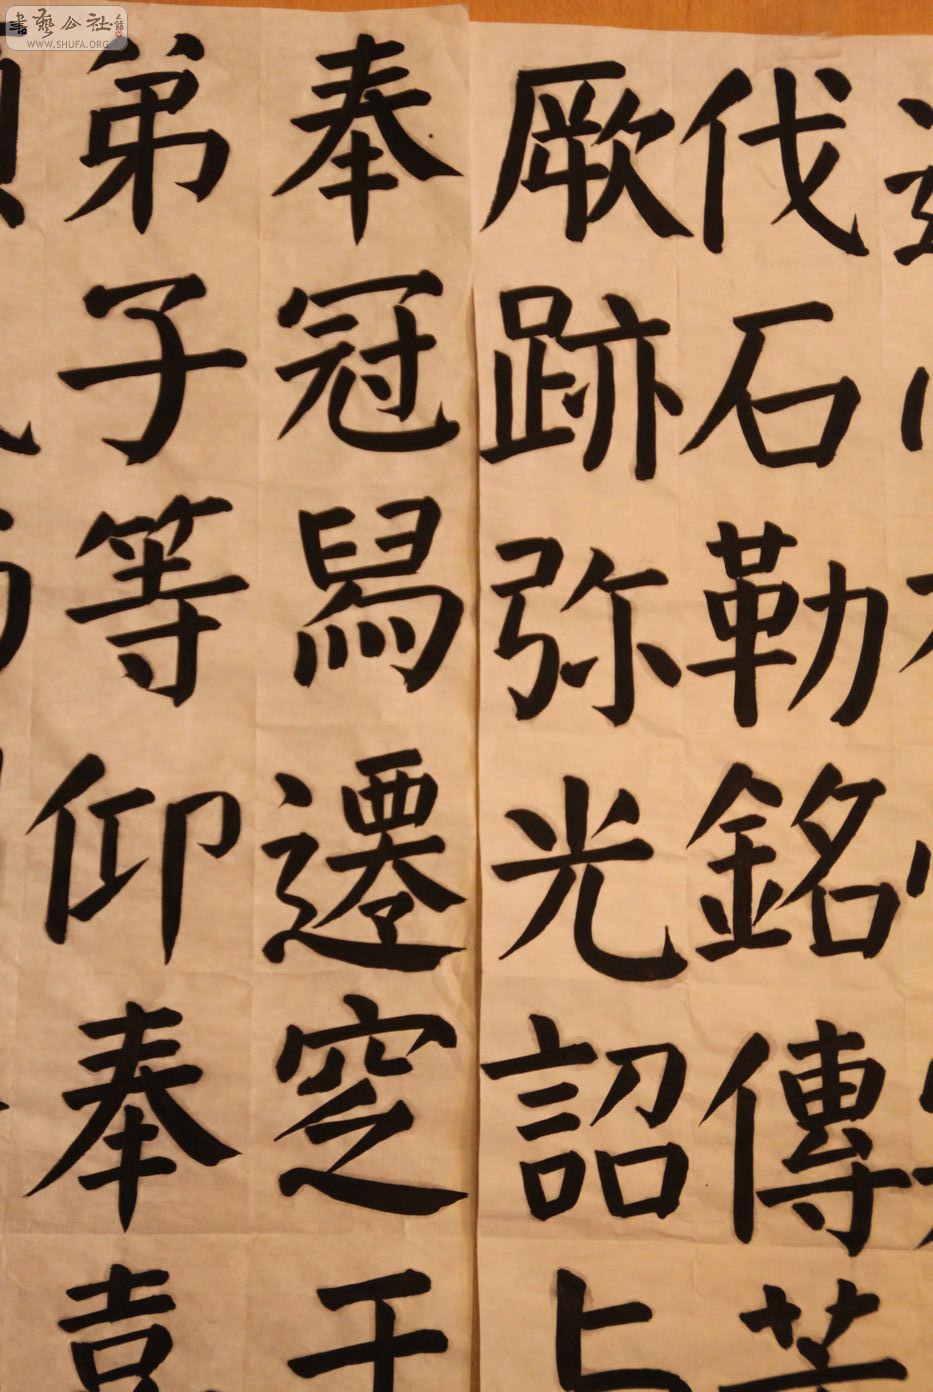 伐石勒銘傳芳
厥跡弥光詔
奉冠舄遷窆于
弟子等仰奉喜
書藝公社
WWW.SHUFA.ORG